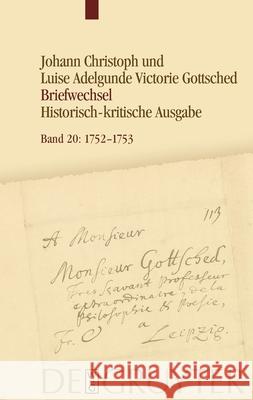 Johann Christoph und
Luise Adelgunde Victorie Gottsched
Briefwechsel
Historisch-kritische Ausgabe
Band 20: 1752–1753
113
A Monsieur
Monsieur Gottsched,
Tres Savant Professeur
extraordinaire, de la
Philosophie & Poesie,
Fr. a Leipzig.
DE GRUYTER